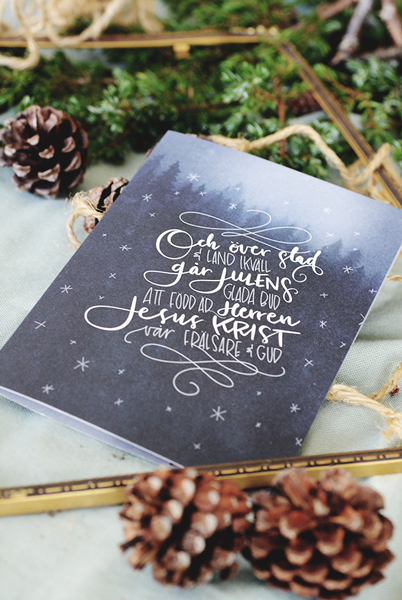 Och över stad
& LAND IKVÄLL
går JULENS
GLADA BUD
ATT FÖDD ÄR Herren
Jesus KRIST
vår FRÄLSARE & GUD